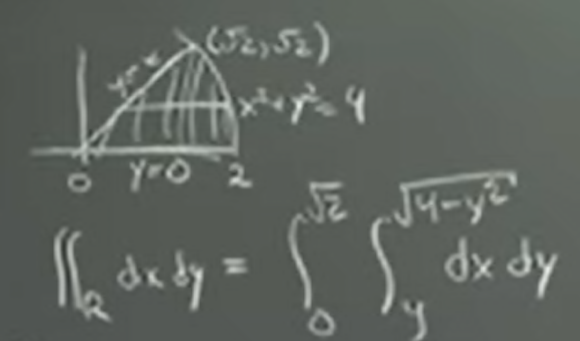 (√2, √2)
y = x
x² + y² = 4
0 y=0 2
∬_R dx dy = ∫_0^√2 ∫_y^√(4-y²) dx dy